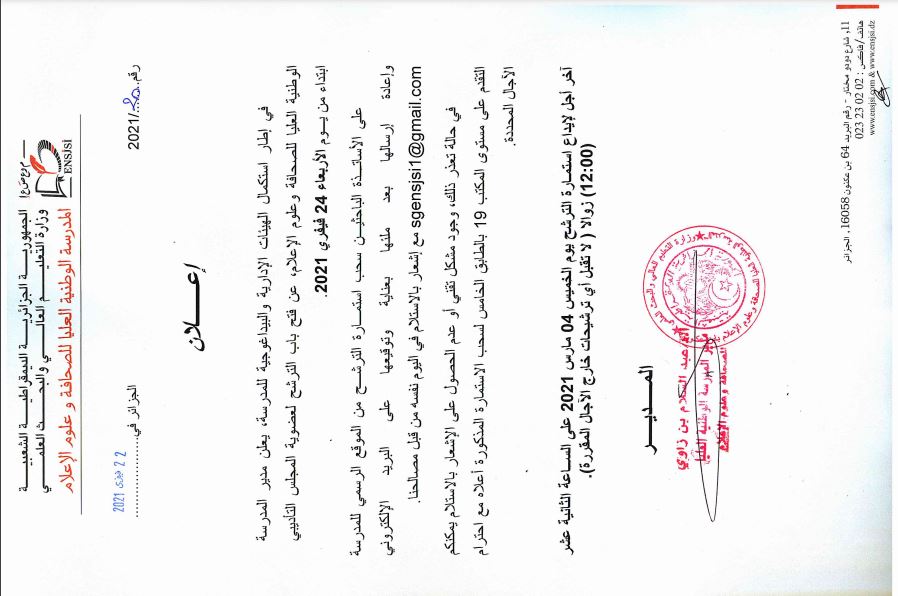 الجمهوريــة الجزائريــة الديمقراطيــة الشعبيــة
وزارة التعليـــم العـــالـــي والبحـــث العلمـــي
المدرسة الوطنية العليا للصحافة و علوم الإعلام
م و ع ص ع إ
ENSJSI
الجزائر في
22 فيفري 2021
رقم /2021
إعـــلان
في إطار استكمال الهيئات الإدارية والبيداغوجية للمدرسة، يعلن مدير المدرسة
الوطنية العليا للصحافة وعلوم الإعلام، عن فتح باب الترشح لعضوية المجلس التأديبي
ابتداء من يــوم الأربعاء 24 فيفري 2021.
على الأساتــذة الباحثيــن سحب استمــارة الترشــح من الموقع الرسمي للمدرسة
وإعادة إرسالها بعد ملئها بعناية وتوقيعها على البريد الإلكتروني
sgensjsi1@gmail.com مع إشعار بالاستلام في اليوم نفسه من قبل مصالحنا.
في حالة تعذر ذلك، وجود مشكل تقني أو عدم الحصول على الإشعار بالاستلام يمكنكم
التقدم على مستوى المكتب 19 بالطابق الخامس لسحب الاستمارة المذكورة أعلاه مع احترام
الآجال المحددة.
آخر أجل لإيداع استمــارة الترشح يوم الخميس 04 مارس 2021 على الساعة الثانية عشر
(12:00) زوالا ( لا تقبل أي ترشيحات خارج الآجال المقررة).
المــديــر
عبد السلام بن زاوي
مدير المدرسة الوطنية العليا
للصحافة وعلوم الإعلام
11، شارع دودو مختار - رقم البريد 64 بن عكنون 16058، الجزائر
هاتف/فاكس : 02 02 23 023
www.ensjsi.com & www.ensjsi.dz